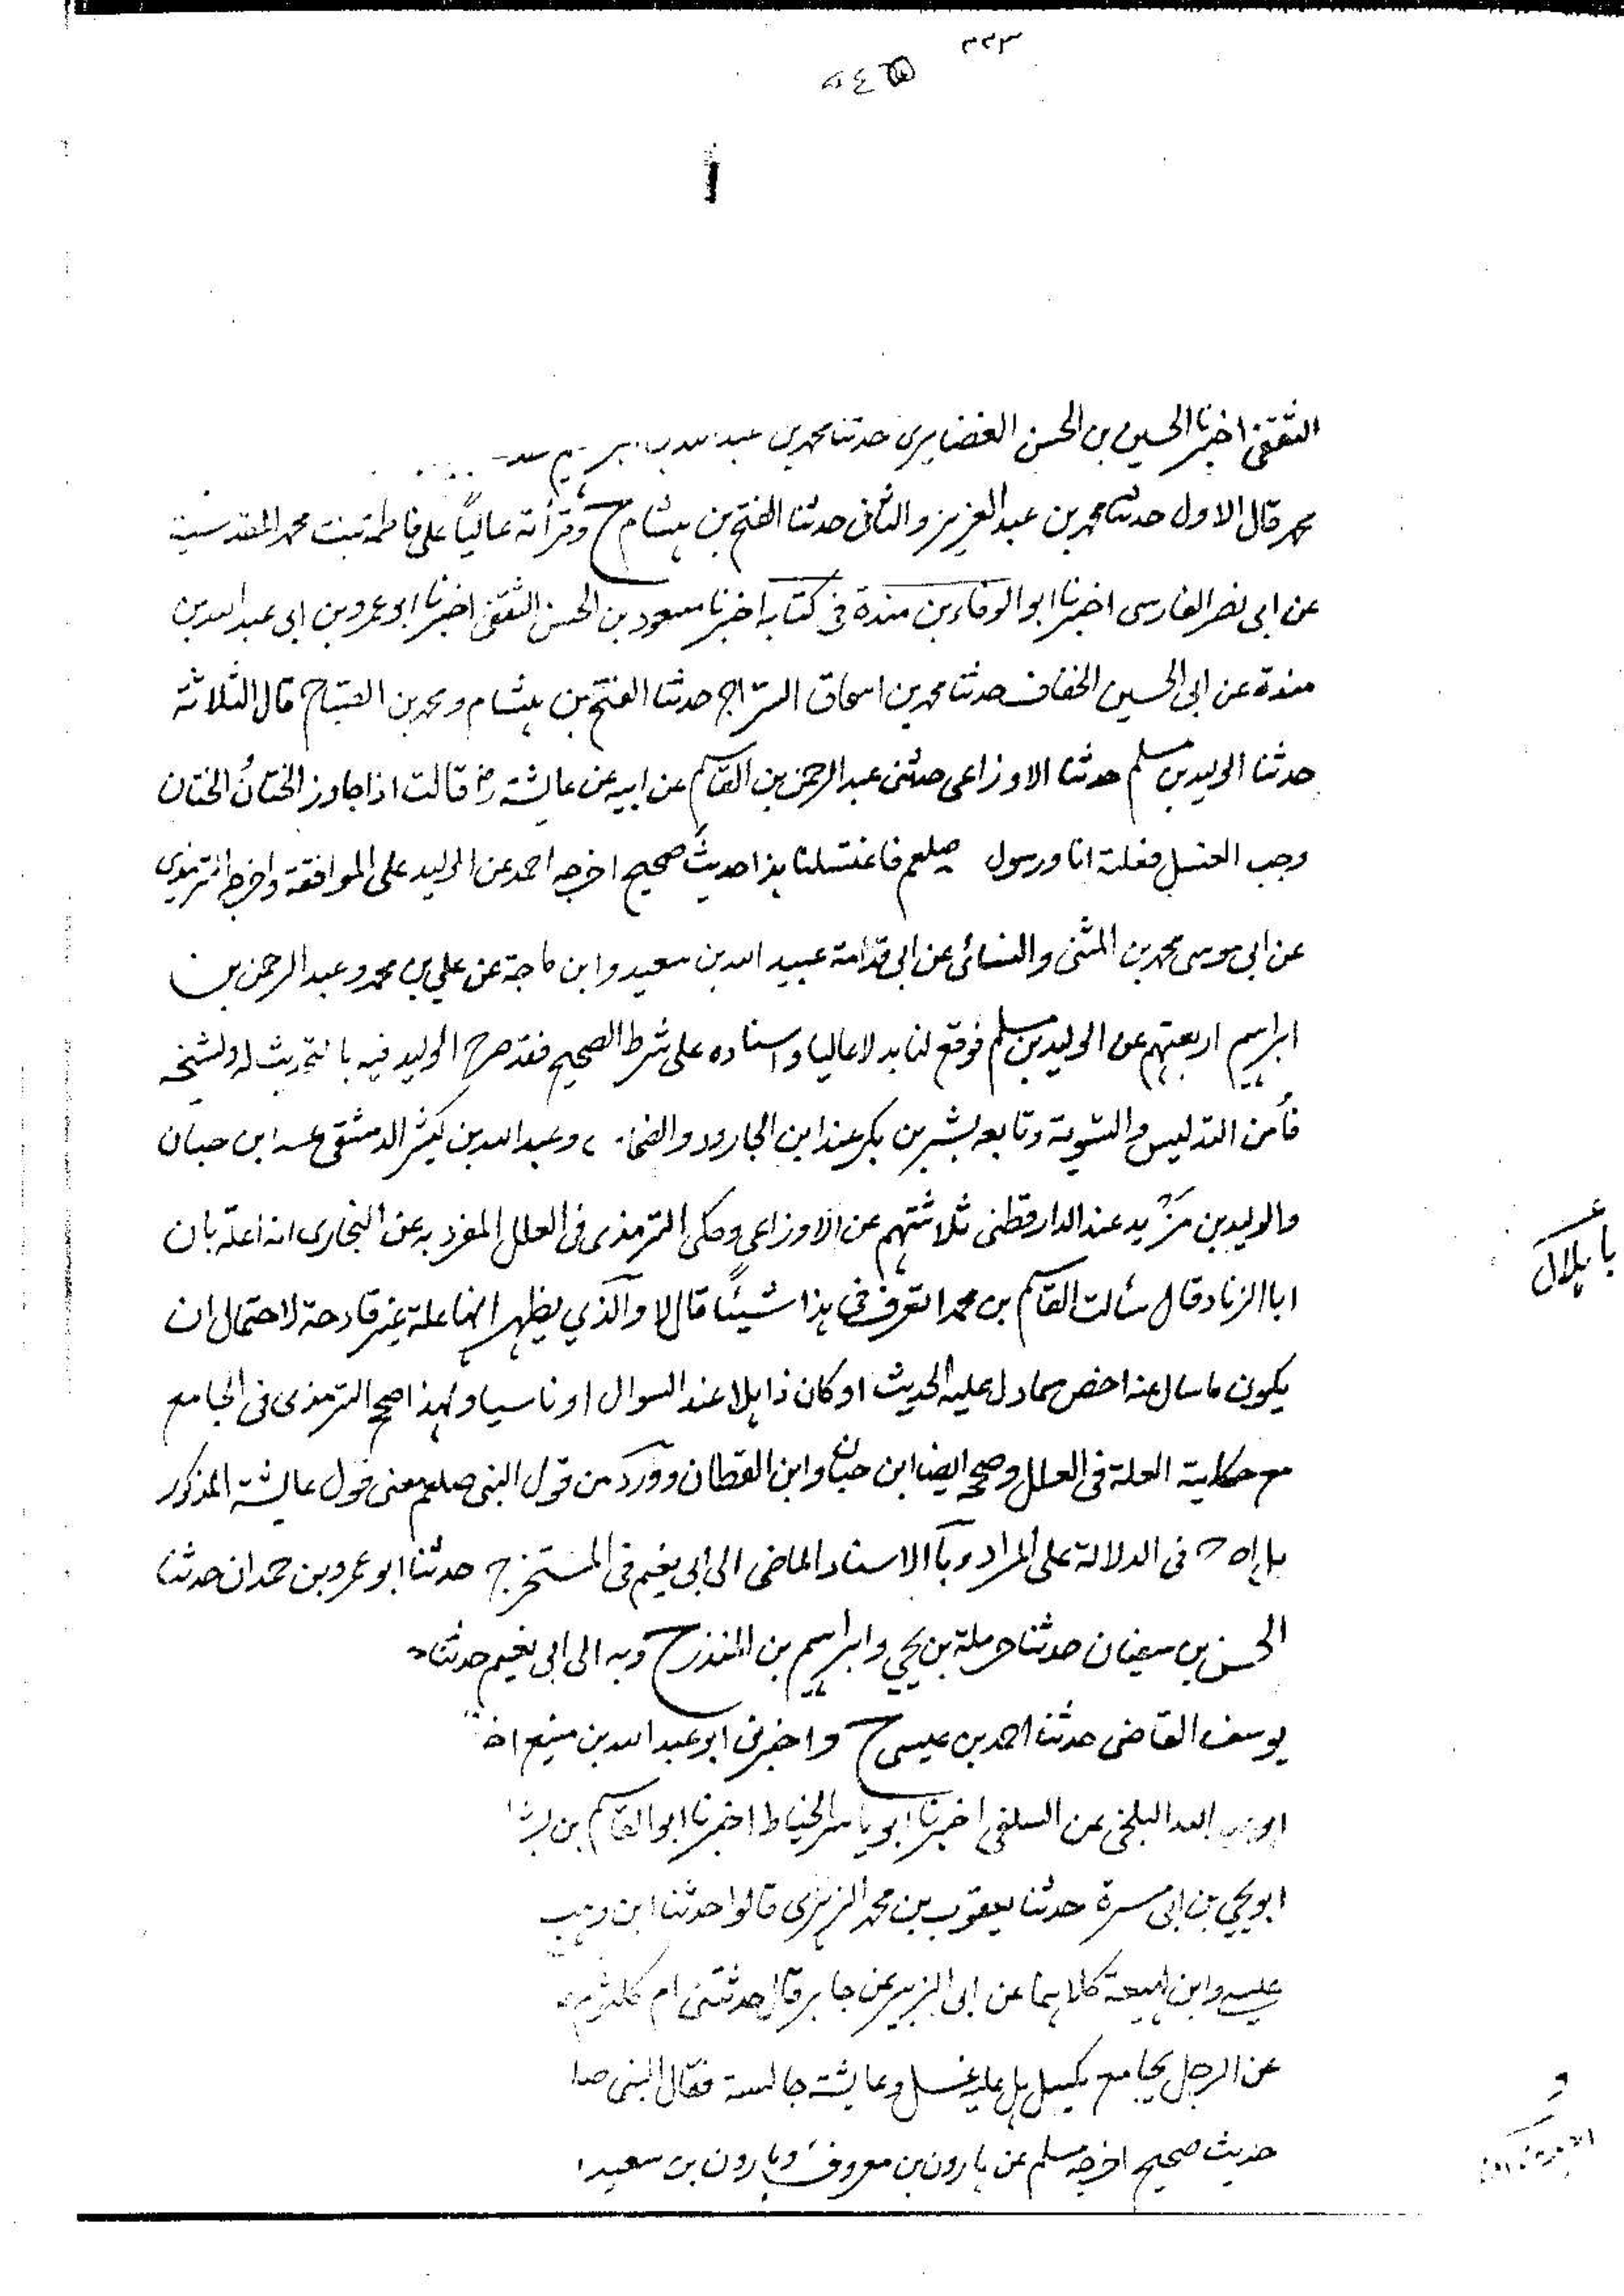 ٣٣٣
الثقفي اخبرنا الحسين بن الحسن الغضايرى حدثنا محمد بن
محمد قال الاول حدثنا محمد بن عبد العزيز والثانى حدثنا الفتح بن هشام ح وقرأته عالياً على فاطمة بنت محمد المقدسية
عن ابى نصر الفارسى اخبرنا ابو الوفاء بن مندة فى كتابه اخبرنا مسعود بن الحسن الثقفى اخبرنا ابو عمرو بن ابى عبد الله بن
مندة عن ابى الحسين الخفاف حدثنا محمد بن اسحاق السرّاج حدثنا الفتح بن هشام ومحمد بن الصباح قال الثلاثة
حدثنا الوليد بن مسلم حدثنا الاوزاعى حدثنى عبد الرحمن بن القاسم عن ابيه عن عايشة رضـ قالت اذا جاوز الختانُ الختان
وجب الغسل فعلته انا ورسول صلعم فاغتسلنا هذا حديثٌ صحيح اخرجه احمد عن الوليد على الموافقة واخرجه الترمذى
عن ابى موسى محمد بن المثنى والنسائى عن ابى قدامة عبيد الله بن سعيد وابن ماجة عن علي بن محمد وعبد الرحمن بن
ابراهيم اربعتهم عن الوليد بن مسلم فوقع لنا بدلا عاليا واسناده على شرط الصحيح فقد صرح الوليد فيه بالتحديث له ولشيخه
فأمن التدليس والتسوية وتابعه بشر بن بكر عند ابن الجارود و وعبد الله بن كثير الدمشقى عند ابن حبان
والوليد بن مَزْيد عند الدارقطنى ثلاثتهم عن الاوزاعي وحكى الترمذى فى العلل المفرد به عن البخارى انه اعلّه بان
ابا الزناد قال سألت القاسم بن محمد اتعرف فى هذا شيئًا قال لا والذي يظهر انها علة غير قادحة لاحتمال ان
يكون ما سال عنه اخص مما دل عليه الحديث او كان ذاهلا عند السوال او ناسيا ولهذا صحح الترمذى فى الجامع
مع حكاية العلة فى العلل وصححه ايضا ابن حبان وابن القطان وورد من قول النبى صلعم معنى قول عايشة المذكور
فى الدلالة على المراد وبالاسناد الماضى الى ابى نعيم فى المستخرج حدثنا ابو عمرو بن حمدان حدثنا
الحسن بن سفيان حدثنا حرملة بن يحيي وابراهيم بن المنذر ح وبه الى ابى نعيم حدثنا
يوسف القاضى حدثنا احمد بن عيسى ح واخبرنى ابو عبد الله بن منيع
الله البلخى عن السلفى اخبرنا ابو ياسر الخياط اخبرنا ابو القاسم بن
ابو يحيي بن ابى مسرة حدثنا يعقوب بن محمد الزهرى قالوا حدثنا ابن وهب
وابن لهيعة كلاهما عن ابى الزبير عن جابر قال حدثتنى ام كلثوم
عن الرجل يجامع يكسل هل عليه غسل وعايشة جالسة فقال النبى
حديث صحيح اخرجه مسلم عن هارون بن معروف وهارون بن سعيد